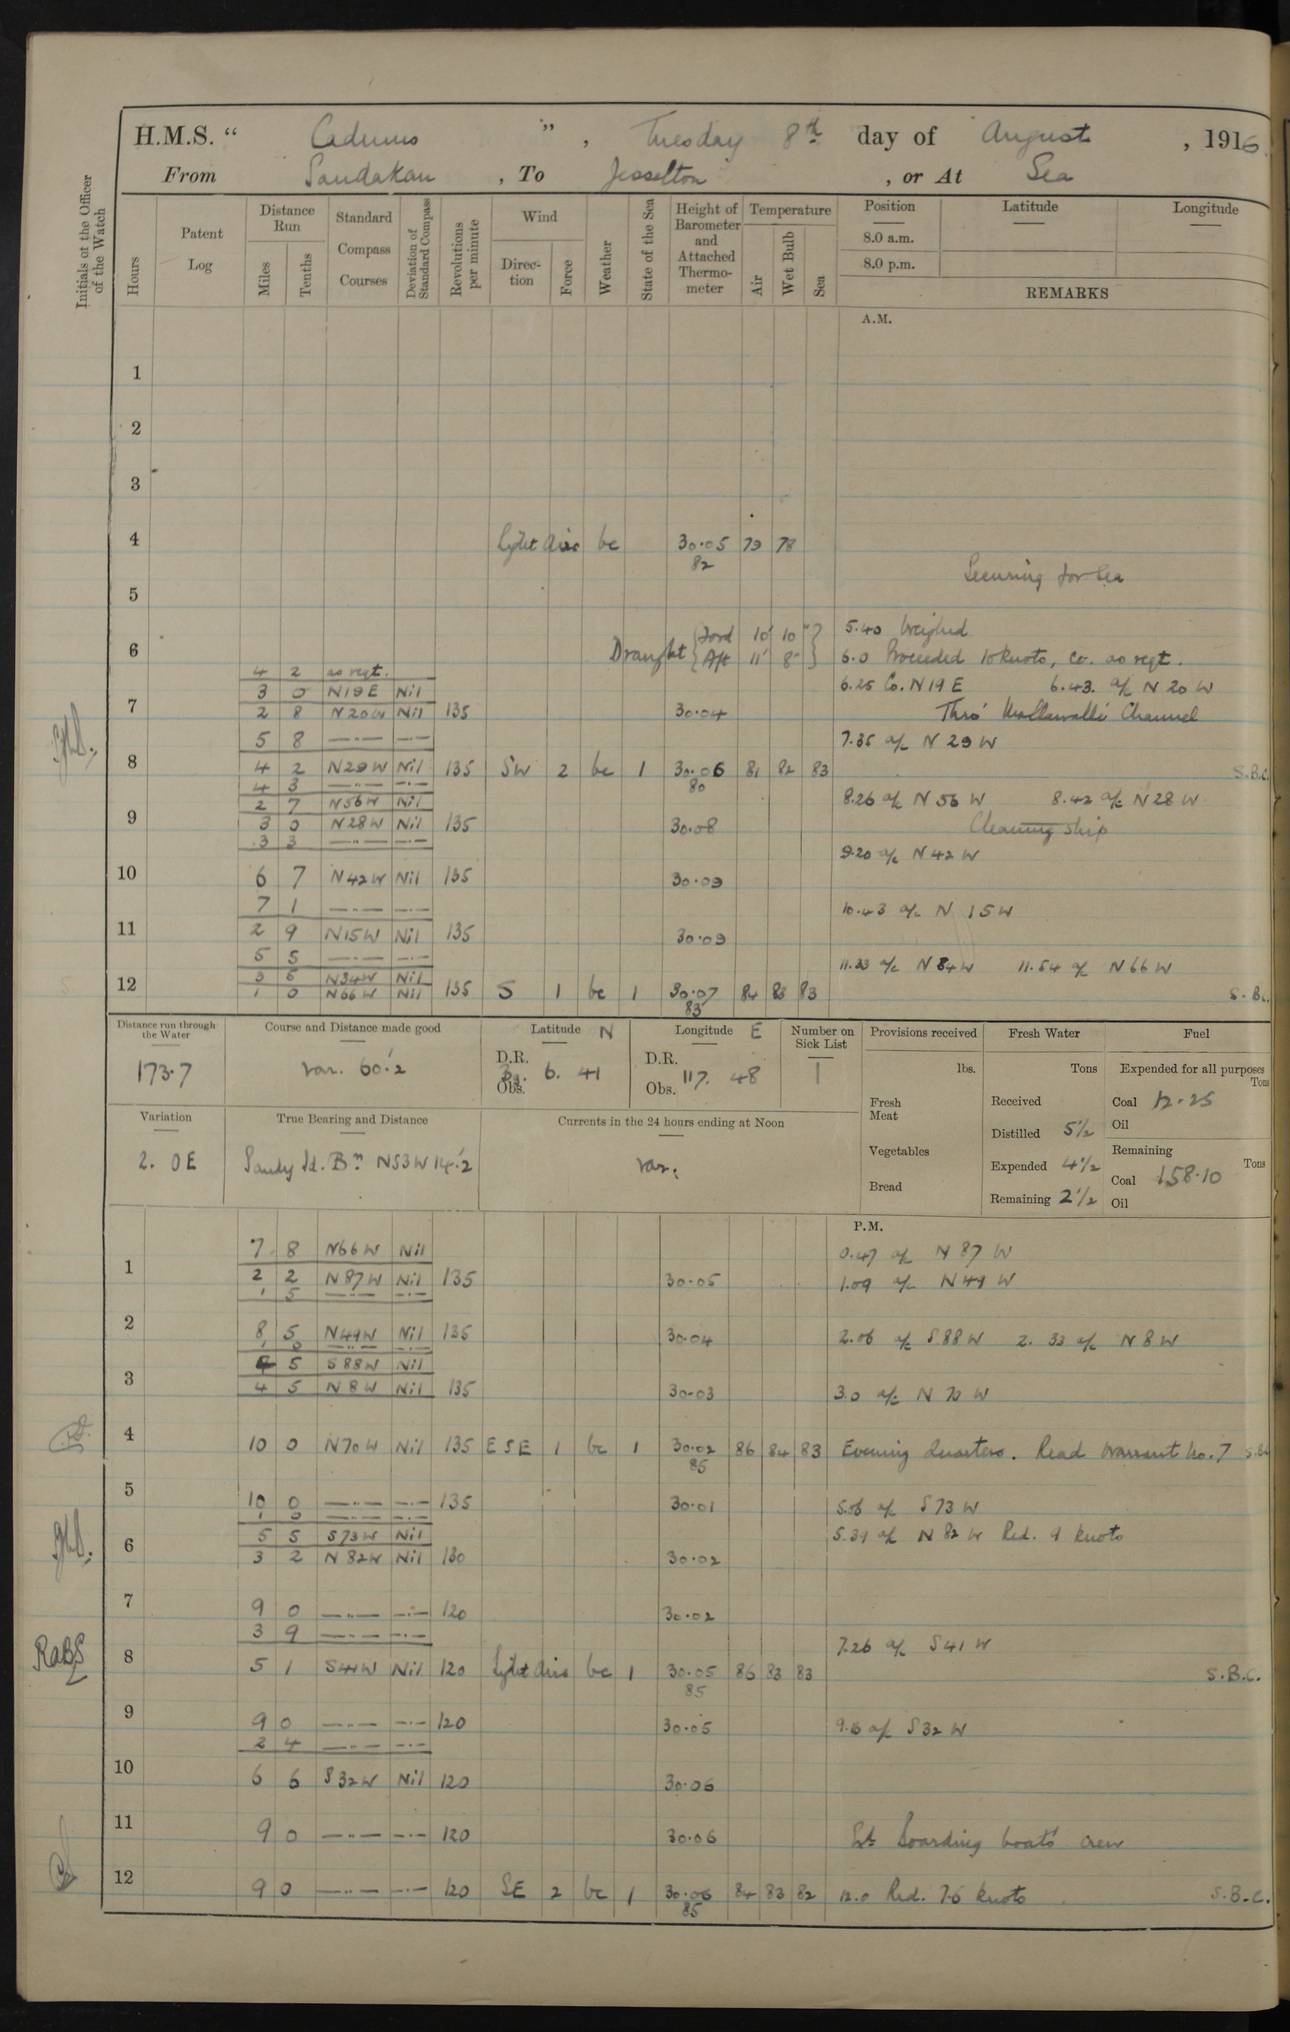 H.M.S. " Cadmus ", Tuesday 8th day of August, 1916
From Sandakan, To Jesselton, or At Sea
Initials of the Officer of the Watch
Hours
Patent Log
Distance Run
Miles Tenths
Standard Compass Courses
Deviation of Standard Compass
Revolutions per minute
Wind
Direction Force
Weather
State of the Sea
Height of Barometer and Attached Thermometer
Temperature
Air Wet Bulb Sea
Position Latitude Longitude
8.0 a.m.
8.0 p.m.
REMARKS
A.M.
1
2
3
4 Light Airs bc 30.05 79 78
82
Securing for Sea
5
5.40 Weighed
6 Draught { Ford 10' 10" } { Aft 11' 8" } 6.0 Proceeded 10 knots, Co. as reqt.
4 2 as reqt.
3 0 N19E Nil 6.25 Co. N19E 6.43. a/c N20W
7 2 8 N20W Nil 135 30.04 Thro' Mallawalli Channel
5 8 —..— —.— 7.35 a/c N29W
8 4 2 N29W Nil 135 SW 2 bc 1 30.06 81 82 83 S.B.C.
80
4 3 —..— —.—
2 7 N56W Nil 8.26 a/c N56W 8.42 a/c N28W
9 3 0 N28W Nil 135 30.08 Cleaning ship
3 3 —..— —.— 9.20 a/c N42W
10 6 7 N42W Nil 135 30.09
7 1 —..— —.— 10.43 a/c N15W
11 2 9 N15W Nil 135 30.09
5 5 —..— —.— 11.33 a/c N84W 11.54 a/c N66W
3 5 N34W Nil
12 1 0 N66W Nil 135 S 1 bc 1 30.07 84 83 83 S.B.C.
83
Distance run through the Water
173.7
Course and Distance made good
var. 60'.2
Latitude N
D.R.
Obs.
6. 41
Longitude E
D.R.
Obs. 117. 48
Number on Sick List
1
Provisions received
lbs.
Fresh Meat
Vegetables
Bread
Fresh Water
Tons
Received
Distilled 5½
Expended 4½
Remaining 2½
Fuel
Expended for all purposes
Tons
Coal 12.25
Oil
Remaining
Tons
Coal 158.10
Oil
Variation
2. 0E
True Bearing and Distance
Sandy Id. Bn N53W 14'.2
Currents in the 24 hours ending at Noon
var.
P.M.
7 8 N66W Nil 0.47 a/c N87W
1 2 2 N87W Nil 135 30.05 1.09 a/c N49W
1 5 —..— —.—
2 8 5 N49W Nil 135 30.04 2.06 a/c S88W 2.33 a/c N8W
1 0 —..— —.—
5 S88W Nil
3 4 5 N8W Nil 135 30.03 3.0 a/c N70W
4 10 0 N70W Nil 135 ESE 1 bc 1 30.02 86 84 83 Evening Quarters. Read Warrant No. 7 S.B.C.
85
5 10 0 —..— —.— 135 30.01 5.06 a/c S73W
1 0 —..— —.—
5 5 S73W Nil 5.39 a/c N82W Red. 9 knots
6 3 2 N82W Nil 130 30.02
7 9 0 —..— —.— 120 30.02
3 9 —..— —.— 7.26 a/c S41W
8 5 1 S41W Nil 120 Light Airs bc 1 30.05 86 83 83 S.B.C.
85
RaBS
9 9 0 —..— —.— 120 30.05 a/c S32W
2 4 —..— —.—
10 6 6 S32W Nil 120 30.06
11 9 0 —..— —.— 120 30.06 boarding boats' crew
12 9 0 —..— —.— 120 SE 2 bc 1 30.06 84 83 82 12.0 Red. 7.6 knots S.B.C.
85